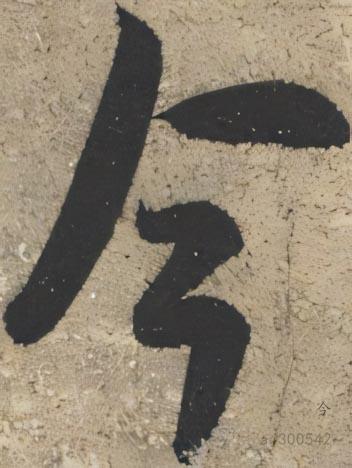 今
今
a4300542~